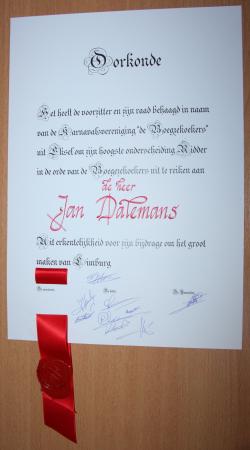 Oorkonde
Het heeft de voorzitter en zijn raad behaagd in naam
van de Karnavalsvereniging "de Boegzekoekers"
uit Elksel om zijn hoogste onderscheiding Ridder
in de orde van de Boegzekoekers uit te reiken aan
de heer
Jan Dalemans
Uit erkentelijkheid voor zijn bijdrage om het groot
maken van Limburg